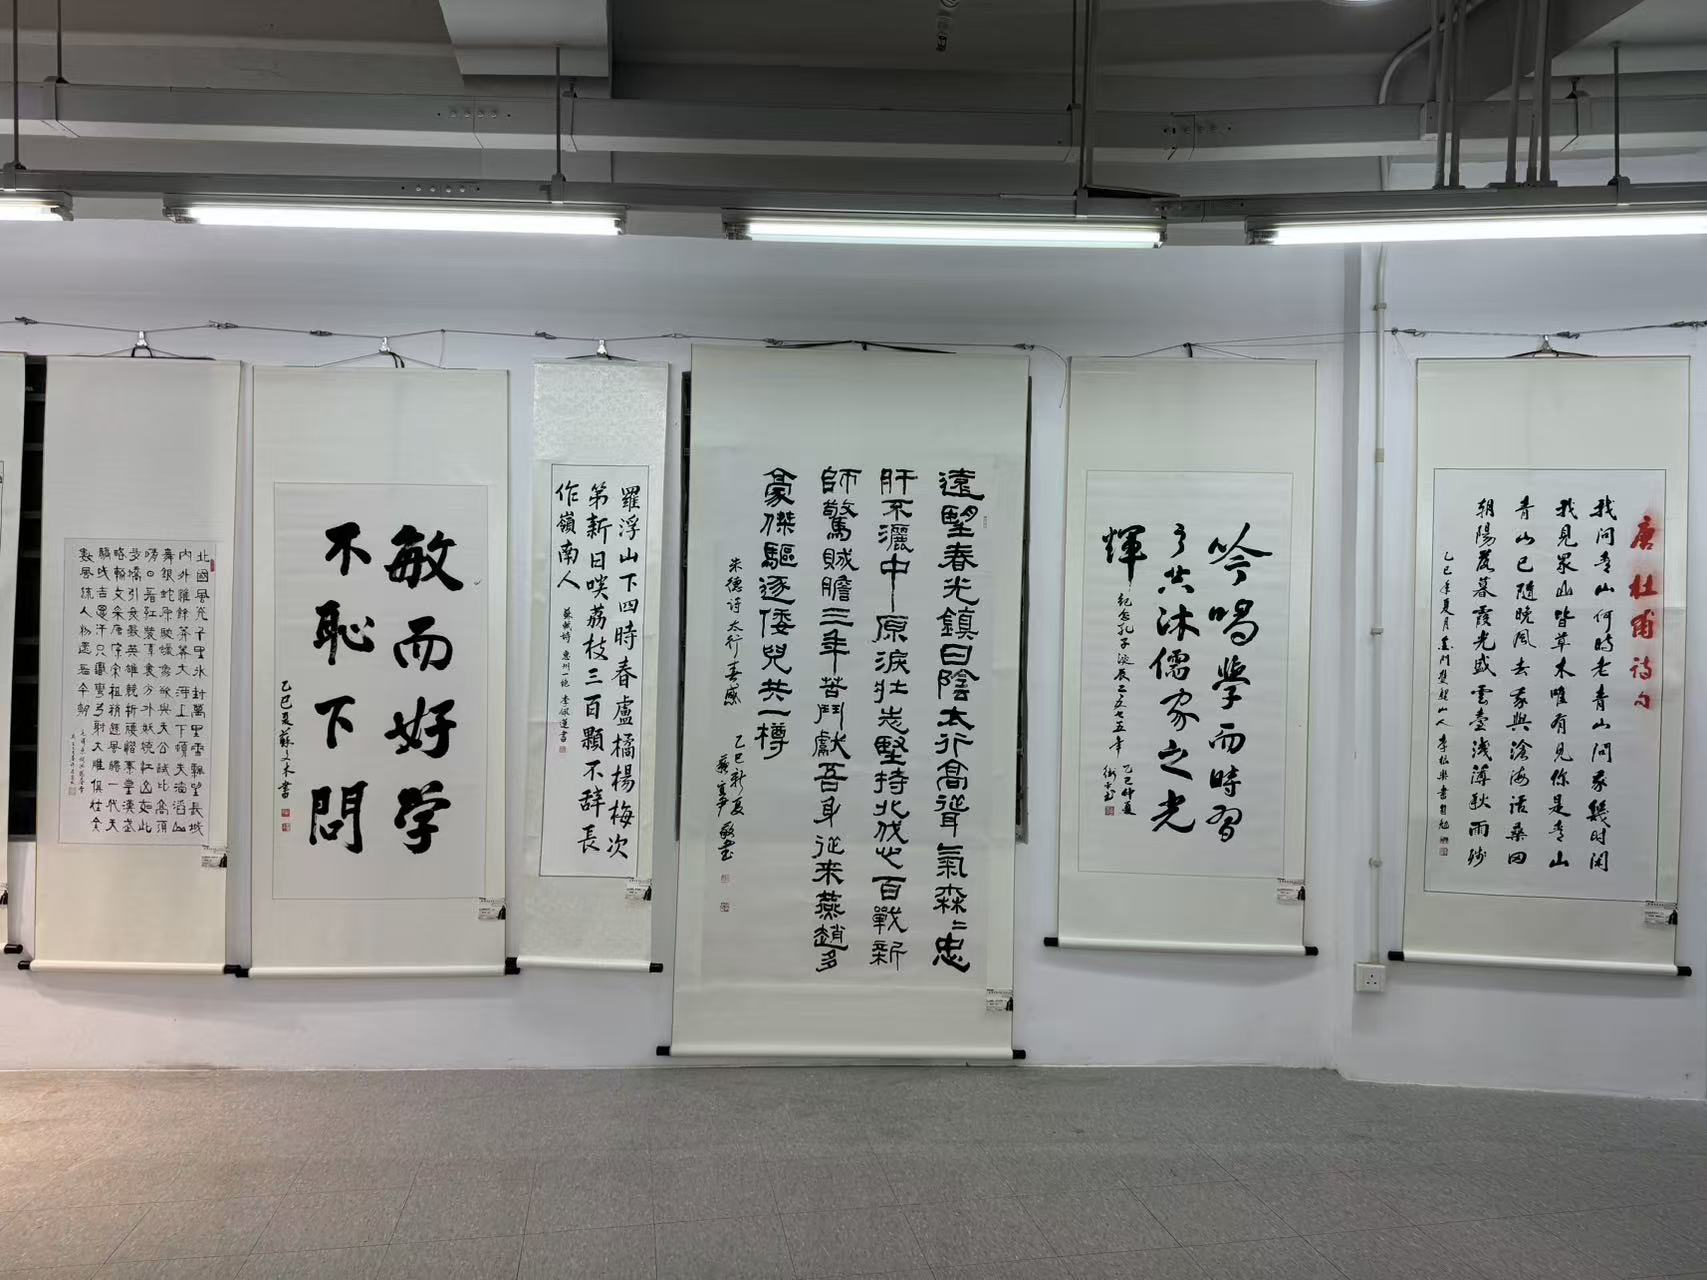 北國風光千里冰封萬里雪飄望長城
內外惟餘莽莽大河上下頓失滔滔山
舞銀蛇原馳蠟象欲與天公試比高須
晴日看紅裝素裹分外妖嬈江山如此
多嬌引無數英雄競折腰惜秦皇漢武
略輸文采唐宗宋祖稍遜風騷一代天
驕成吉思汗只識彎弓射大雕俱往矣
數風流人物還看今朝
敏而好学
不恥下問
乙巳夏蘇文木書
羅浮山下四時春盧橘楊梅次
第新日啖荔枝三百顆不辭長
作嶺南人
蘇軾詩 惠州一絕 李佩蓮書
遠望春光鎮日陰太行高聳氣森森忠
肝不灑中原淚壯志堅持北伐心百戰新
師驚賊膽三年苦鬥獻吾身從來燕趙多
豪傑驅逐倭兒共一樽
朱德詩 太行春感
乙巳新夏
吟唱學而時習
之共沐儒家之光
輝
紀念孔子誕辰二五七五年 乙巳仲夏
唐杜甫詩句
我问青山何時老青山问我幾时闲
我見眾山皆草木唯有見你是青山
青山已隨晚风去我與滄海话桑田
朝陽薄暮霞光盛雲臺淺薄秋雨
乙巳年夏月